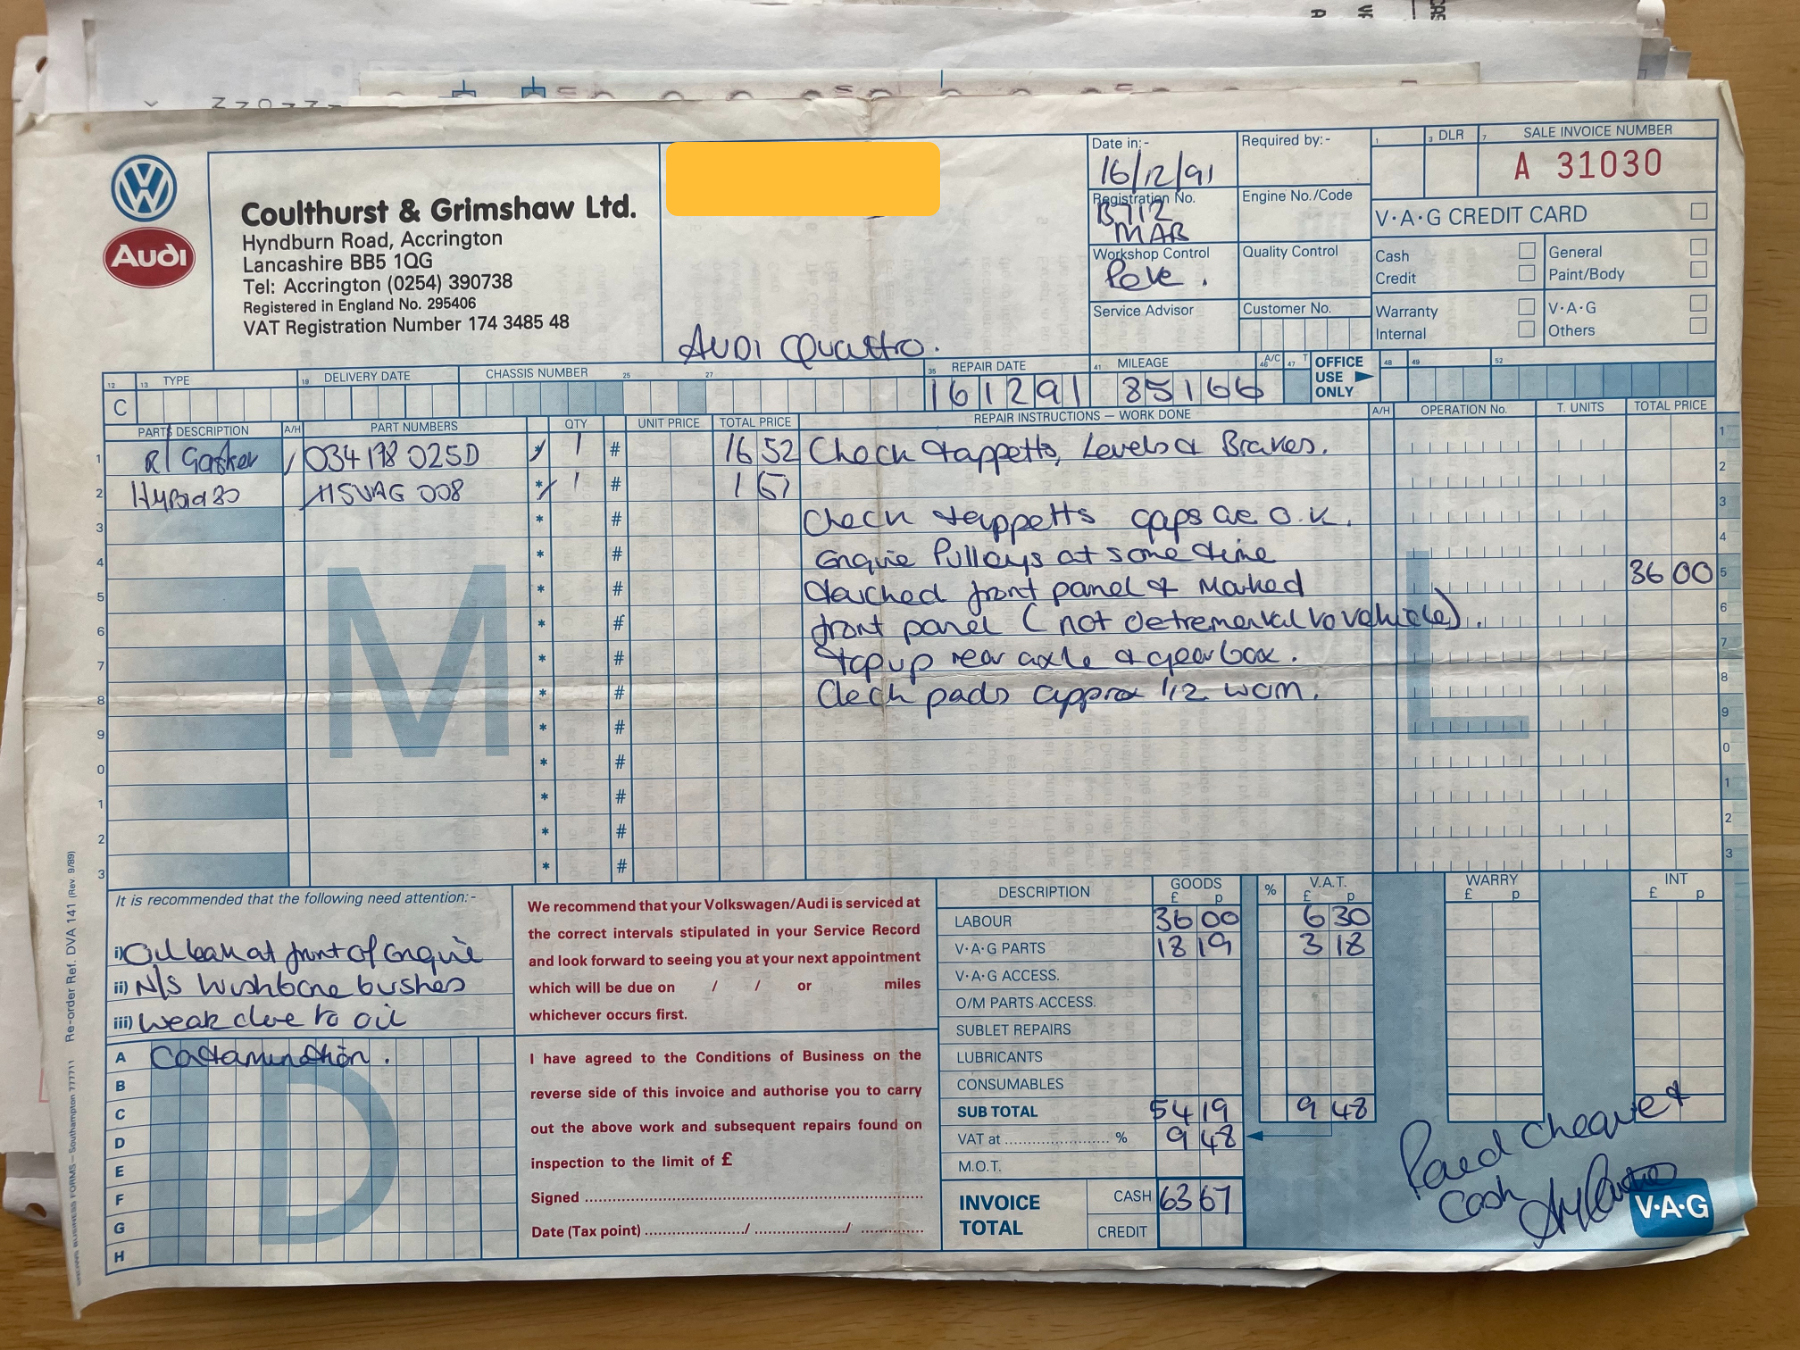 Coulthurst & Grimshaw Ltd.
Hyndburn Road, Accrington
Lancashire BB5 1QG
Tel: Accrington (0254) 390738
Registered in England No. 295406
VAT Registration Number 174 3485 48
Audi
AUDI Quattro.
Date in:-
16/12/91
Required by:-
Registration No.
B712
MAB
Engine No./Code
Workshop Control
Quality Control
Service Advisor
Customer No.
1 3 DLR 7 SALE INVOICE NUMBER
A 31030
V·A·G CREDIT CARD
Cash General
Credit Paint/Body
Warranty V·A·G
Internal Others
12 13 TYPE 18 DELIVERY DATE CHASSIS NUMBER 25 27 35 REPAIR DATE 41 MILEAGE A/C 46 47 T OFFICE USE ONLY 48 49 52
C 161291 85166
PARTS DESCRIPTION A/H PART NUMBERS QTY UNIT PRICE TOTAL PRICE REPAIR INSTRUCTIONS — WORK DONE A/H OPERATION No. T. UNITS TOTAL PRICE
1 R/Gasket 034 198 025D * 1 # 16 52 Check tappetts, Levels & Brakes. 1
2 VAG 008 * 1 # 1 67 2
3 * # Check tappetts gaps are O.K. 3
4 * # Engine Pulleys at some time 4
5 * # touched front panel & Marked 36 00 5
6 * # front panel (not detremental to vehicle). 6
7 * # topup rear axle & gearbox. 7
8 * # Check pads approx 1/2 worn. 8
9 * # 9
0 * # 0
1 * # 1
2 * # 2
3 * # 3
M L
It is recommended that the following need attention:-
i) Oil leak at front of Engine
ii) N/S Wishbone bushes
iii) Weak due to oil
A Contamination.
B
C
D
E
F
G
H
D
We recommend that your Volkswagen/Audi is serviced at
the correct intervals stipulated in your Service Record
and look forward to seeing you at your next appointment
which will be due on / / or miles
whichever occurs first.
I have agreed to the Conditions of Business on the
reverse side of this invoice and authorise you to carry
out the above work and subsequent repairs found on
inspection to the limit of £
Signed
Date (Tax point) / /
DESCRIPTION GOODS £ p % V.A.T. £ p WARRY £ p INT £ p
LABOUR 36 00 6 30
V·A·G PARTS 18 19 3 18
V·A·G ACCESS.
O/M PARTS ACCESS.
SUBLET REPAIRS
LUBRICANTS
CONSUMABLES
SUB TOTAL 54 19 9 48
VAT at % 9 48
M.O.T.
INVOICE TOTAL CASH 63 67
CREDIT
Paid Cheque &
Cash
V·A·G
Re-order Ref. DVA 141 (Rev. 9/89)